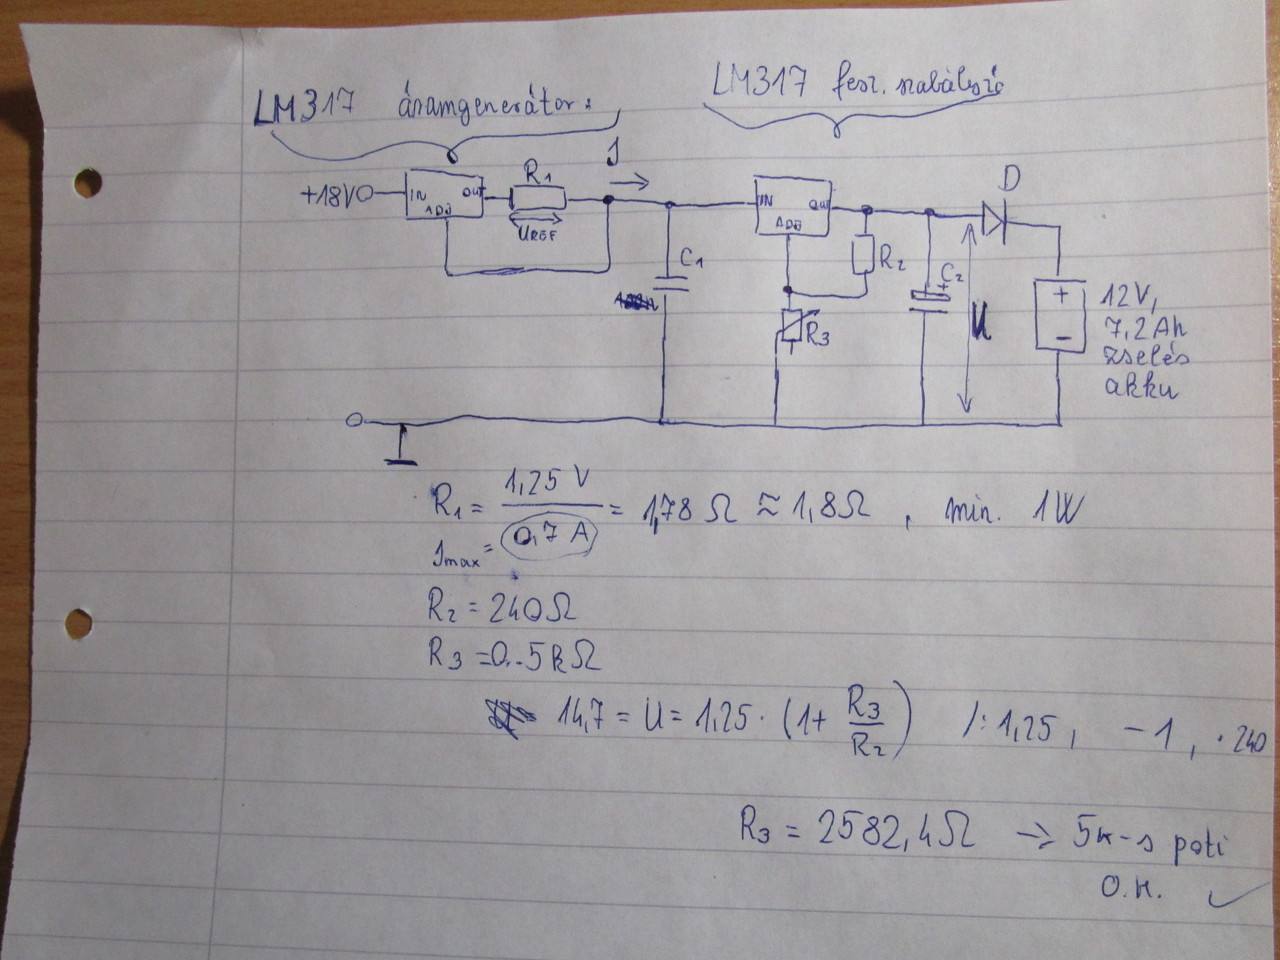 LM317 áramgenerátor:
LM317 fesz. szabályozó
+18V
IN
OUT
ADJ
R1
UREF
I
C1
IN
OUT
ADJ
R2
R3
C2
+
U
D
+
-
12V,
7,2Ah
zselés
akku
R1 = 1,25 V / 0,7 A = 1,78 Ω ≈ 1,8 Ω , min. 1W
Imax =
R2 = 240 Ω
R3 = 0..5kΩ
14,7 = U = 1,25 · (1 + R3/R2) /: 1,25 , -1 , · 240
R3 = 2582,4 Ω → 5k-s poti
O.K. ✓